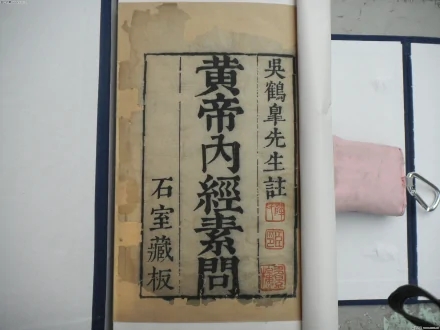 吳鶴皐先生註
黃帝內經素問
石室藏板